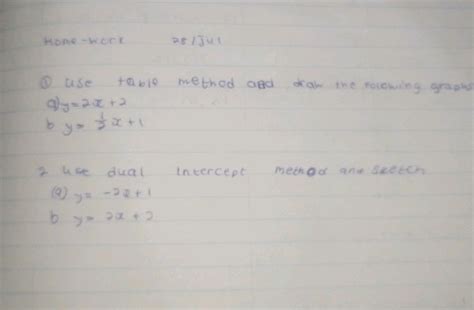 Home-work 28/Jul
① Use table method and draw the following graphs
a) y = 2x + 2
b y = 1/2 x + 1
2 Use dual intercept method and sketch
(a) y = -2x + 1
b y = 2x + 2